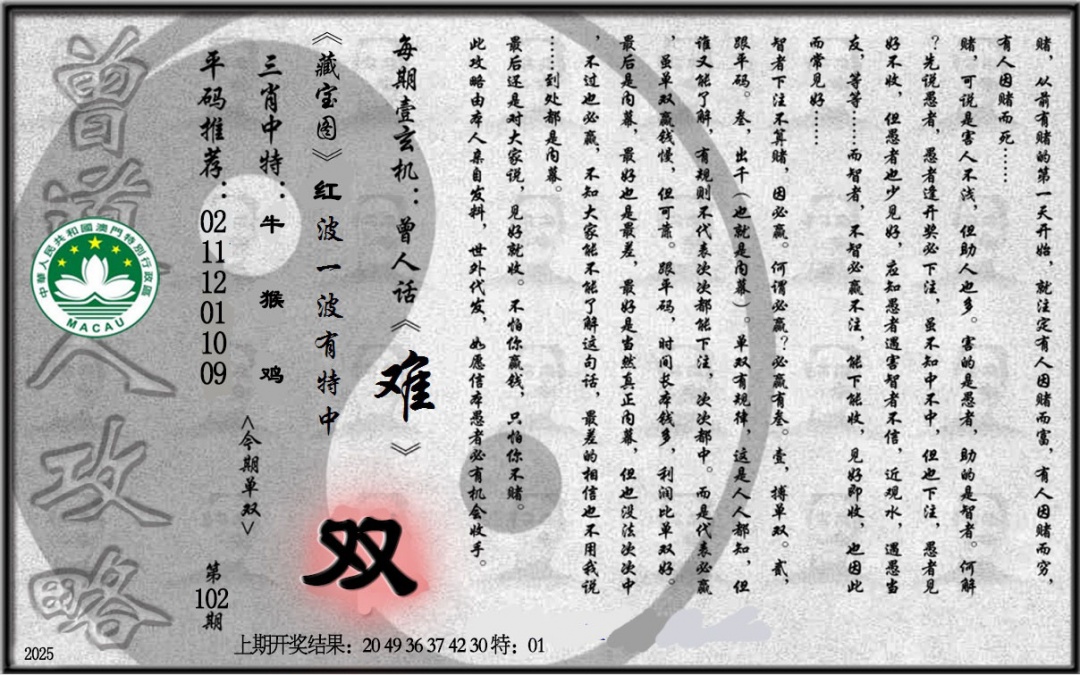 赌，从前有赌的第一天开始，就注定有人因赌而富，有人因赌而穷，
有人因赌而死……
赌，可说是害人不浅，但助人也多。害的是愚者，助的是智者。何解
？先说愚者，愚者逢开奖必下注，虽不知中不中，但也下注，愚者见
好不收，但愚者也少见好，应知愚者遇害智者不信，近观水，遇愚当
友，等等……而智者，不智必赢不注，能下能收，见好即收，也因此
而常见好……
智者下注不算赌，因必赢。何谓必赢？必赢有叁。壹，搏单双。贰，
跟平码。叁，出千（也就是内幕）。单双有规律，这是人人都知，但
谁又能了解，有规则不代表次次都能下注，次次都中。而是代表必赢
，虽单双赢钱慢，但可靠。跟平码，时间长本钱多，利润比单双好。
最后是内幕，最好也是最差，最好是当然真正内幕，但也没法次次中
，不过也必赢，不知大家能不能了解这句话，最差的相信也不用我说
……到处都是内幕。
最后还是对大家说，见好就收。不怕你赢钱，只怕你不赌。
此攻略由本人亲自发料，世外代发，如愿信本愚者必有机会收手。
每期壹玄机：曾人话《难》
《藏宝图》红波一波有特中
双
三肖中特：牛 猴 鸡
<今期单双>
平码推荐：02 11 12 01 10 09
第102期
曾道人攻略
中華人民共和國澳門特別行政區
MACAU
上期开奖结果：20 49 36 37 42 30 特：01
2025